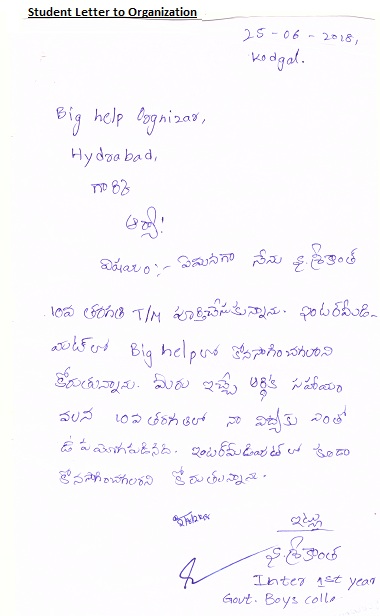 Student Letter to Organization
25-06-2018,
Kodgal.
Big help Orgnizar,
Hydrabad,
గారికి
ఆర్యా!
విషయం :- ఏమనగా నేను శ్రీకాంత్
10వ తరగతి T/M పూర్తిచేసుకున్నాను. ఇంటర్‌మీడి-
యట్‌లో Big help లో కొనసాగించగలరని
కోరుతున్నాను. మీరు ఇచ్చే ఆర్థిక సహాయం
వలన 10వ తరగతిలో నా విద్యకు ఎంతో
ఉపయోగపడినది. ఇంటర్‌మీడియట్ లో కూడా
కొనసాగించగలరని కోరుతున్నాను.
ఇట్లు
శ్రీకాంత్
Inter 1st year
Govt. Boys colle